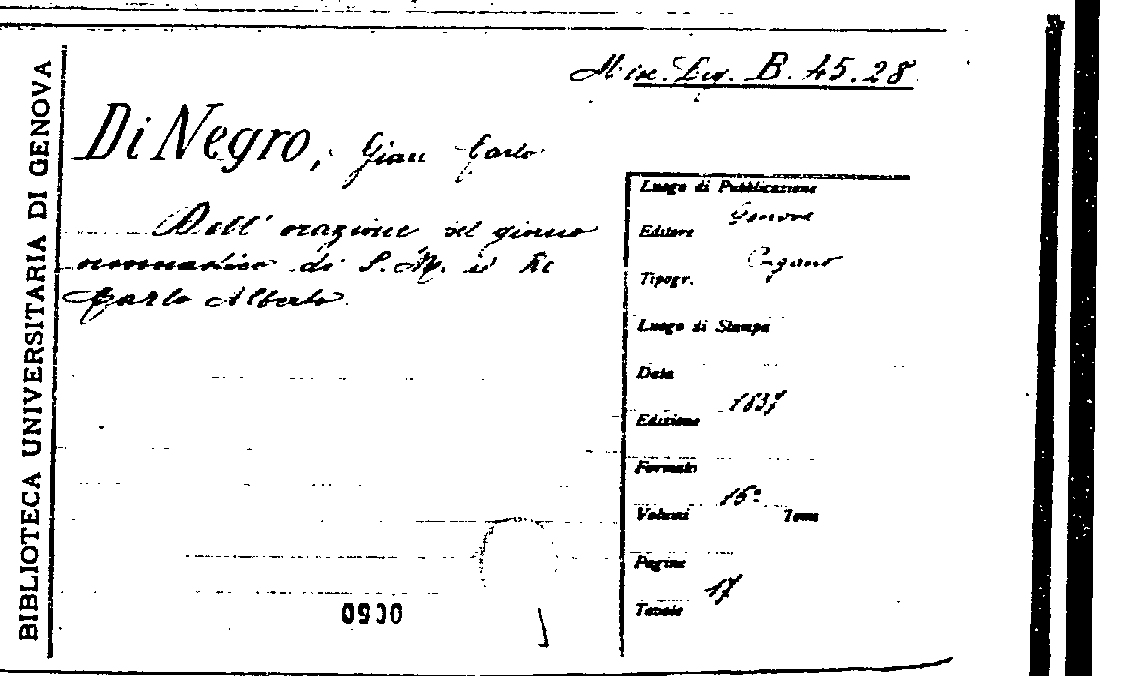 BIBLIOTECA UNIVERSITARIA DI GENOVA
Misc. Lig. B. 45.28
Di Negro, Gian Carlo
Dell' orazione nel giorno
onomastico di S. M. il Re
Carlo Alberto.
Luogo di Pubblicazione
Genova
Editore
Pagano
Tipogr.
Luogo di Stampa
Data
1837
Edizione
Formato
16º
Volumi Tomi
Pagine
17
Tavole